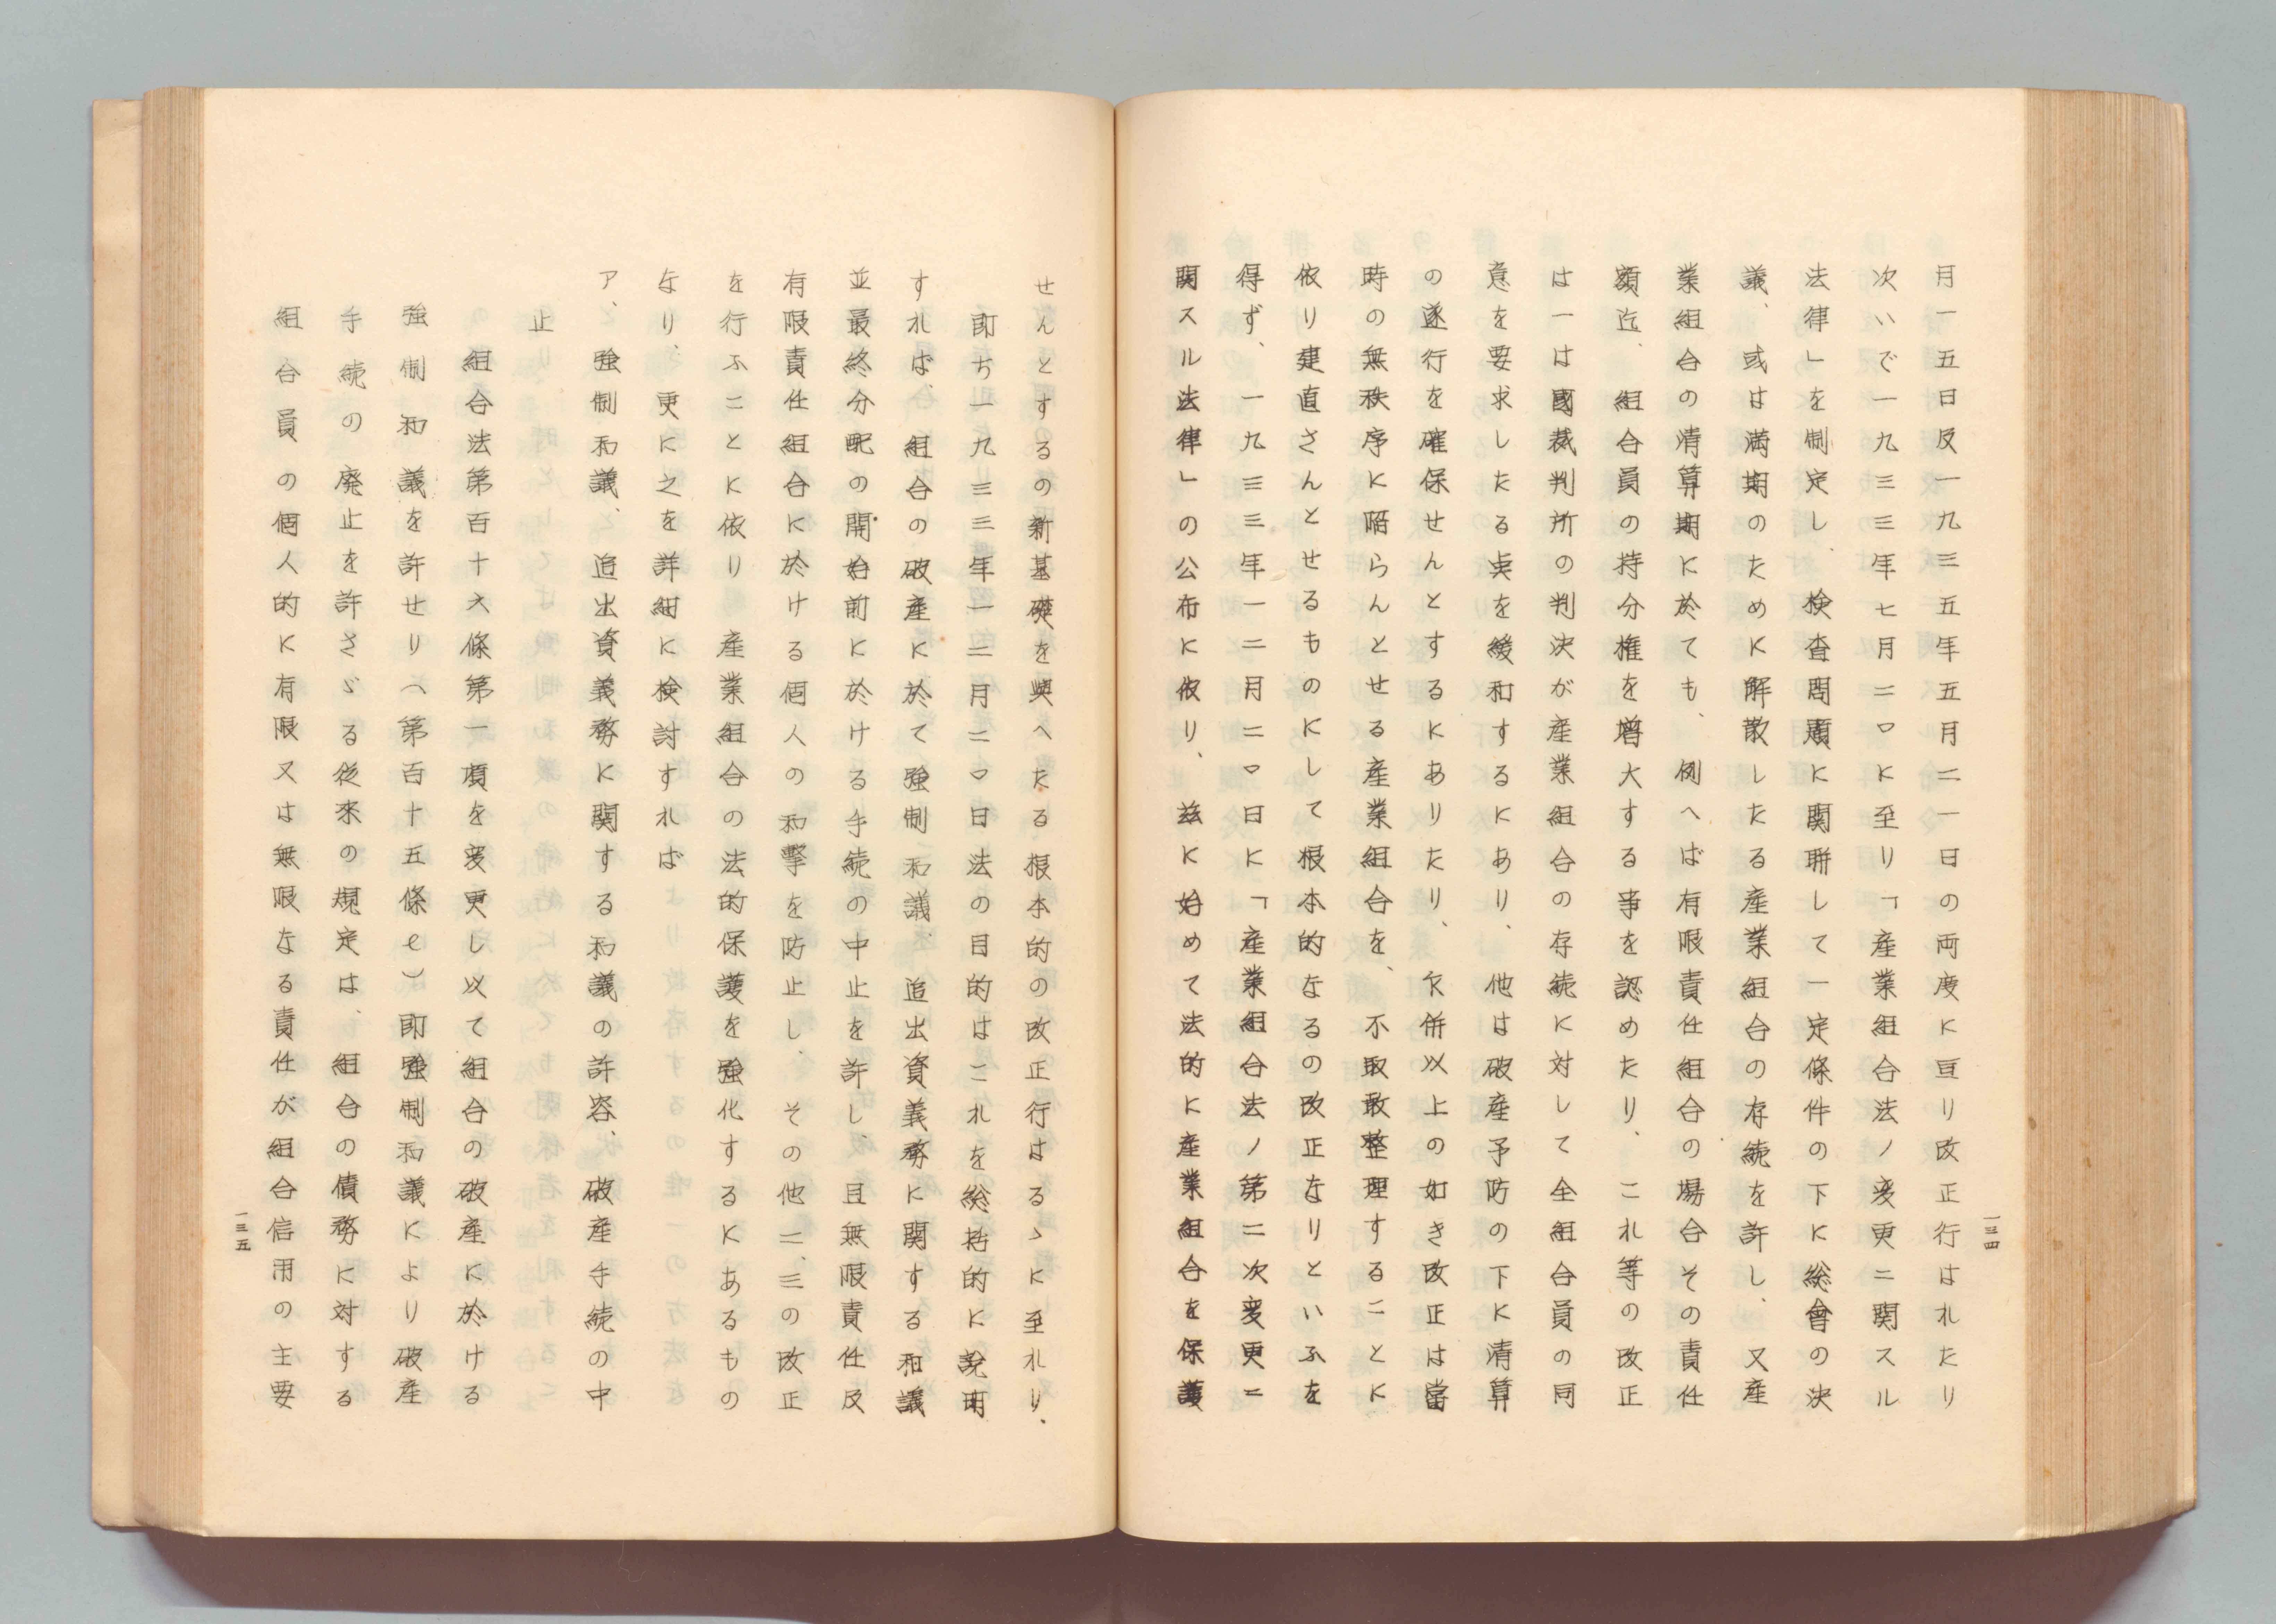 月一五日反一九三五年五月二一日の両度に亘り改正行はれたり
次いで一九三三年七月二〇に至り「産業組合法ノ変更ニ関スル
法律」を制定し、検査問題に関聯して一定條件の下に総會の決
議、或は満期のために解散したる産業組合の存続を許し、又産
業組合の清算期に於ても、例へば有限責任組合の場合その責任
額迄、組合員の持分権を増大する事を認めたり、これ等の改正
は一は國裁判所の判決が産業組合の存続に対して全組合員の同
意を要求したる点を緩和するにあり、他は破産予防の下に清算
の遂行を確保せんとするにありたり、併以上の如き改正は當
時の無秩序に陥らんとせる産業組合を、不取敢整理することに
依り建直さんとせるものにして根本的なるの改正なりといふを
得ず、一九三三年一二月二〇日に「産業組合法ノ第二次変更ニ
関スル法律」の公布に依り、茲に始めて法的に産業組合を保護
一三四
せんとするの新基礎を與へたる根本的の改正行はるゝに至れり、
卽ち一九三三年一二月二〇日法の目的はこれを総括的に説明
すれば、組合の破産に於て強制和議、追出資義務に関する和議
並最終分配の開始前に於ける手続の中止を許し、且無限責任反
有限責任組合に於ける個人の和撃を防止し、その他二、三の改正
を行ふことに依り産業組合の法的保護を強化するにあるもの
なり、更に之を詳細に検討すれば
ア、強制和議、追出資義務に関する和議の許容、破産手続の中
止
組合法第百十六條第一項を変更し以て組合の破産に於ける
強制和議を許せり（第百十五條e）卽強制和議により破産
手続の廃止を許さゞる従来の規定は、組合の債務に対する
組合員の個人的に有限又は無限なる責任が組合信用の主要
一三五